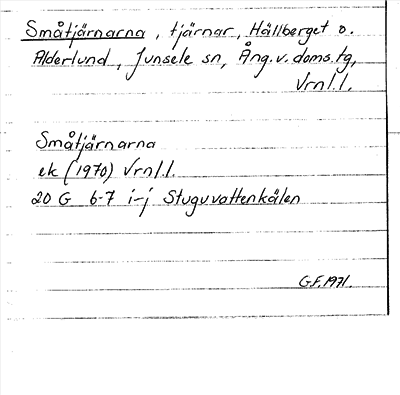 Småtjärnarna, tjärnar, Hällberget o.
Alderlund, Junsele sn, Ång. v. doms. tg,
Vrnl.l.
Småtjärnarna
ek (1970) Vrnl.l.
20 G 6-7 i-j Stuguvattenkälen
G.F. 1971.